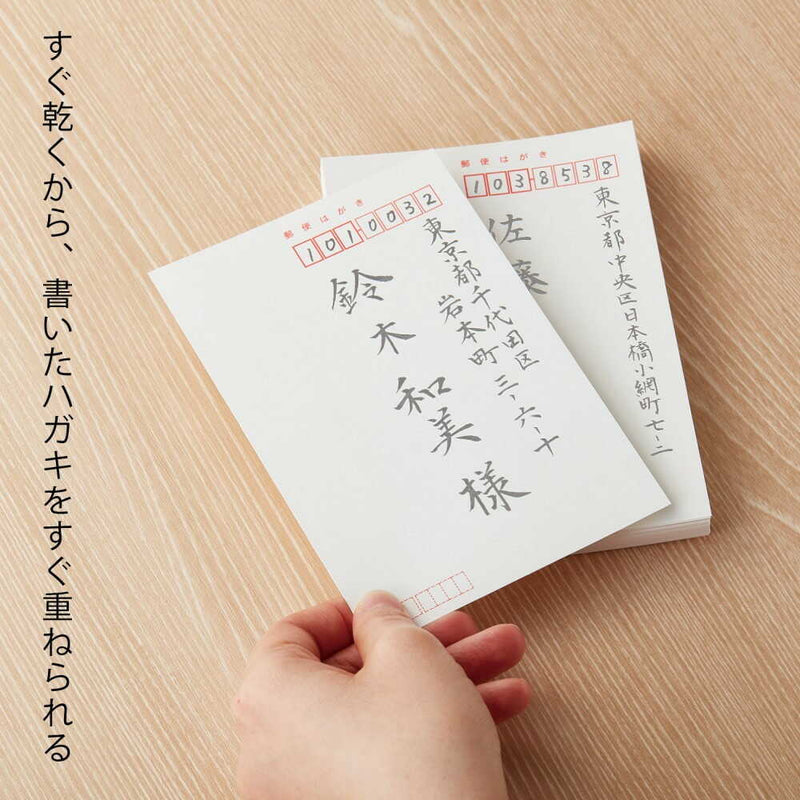 すぐ乾くから、書いたハガキをすぐ重ねられる
郵便はがき
1010032
東京都千代田区
岩本町 三-六-十
鈴木和美様
郵便はがき
1038538
東京都中央区日本橋小網町七-二
佐藤